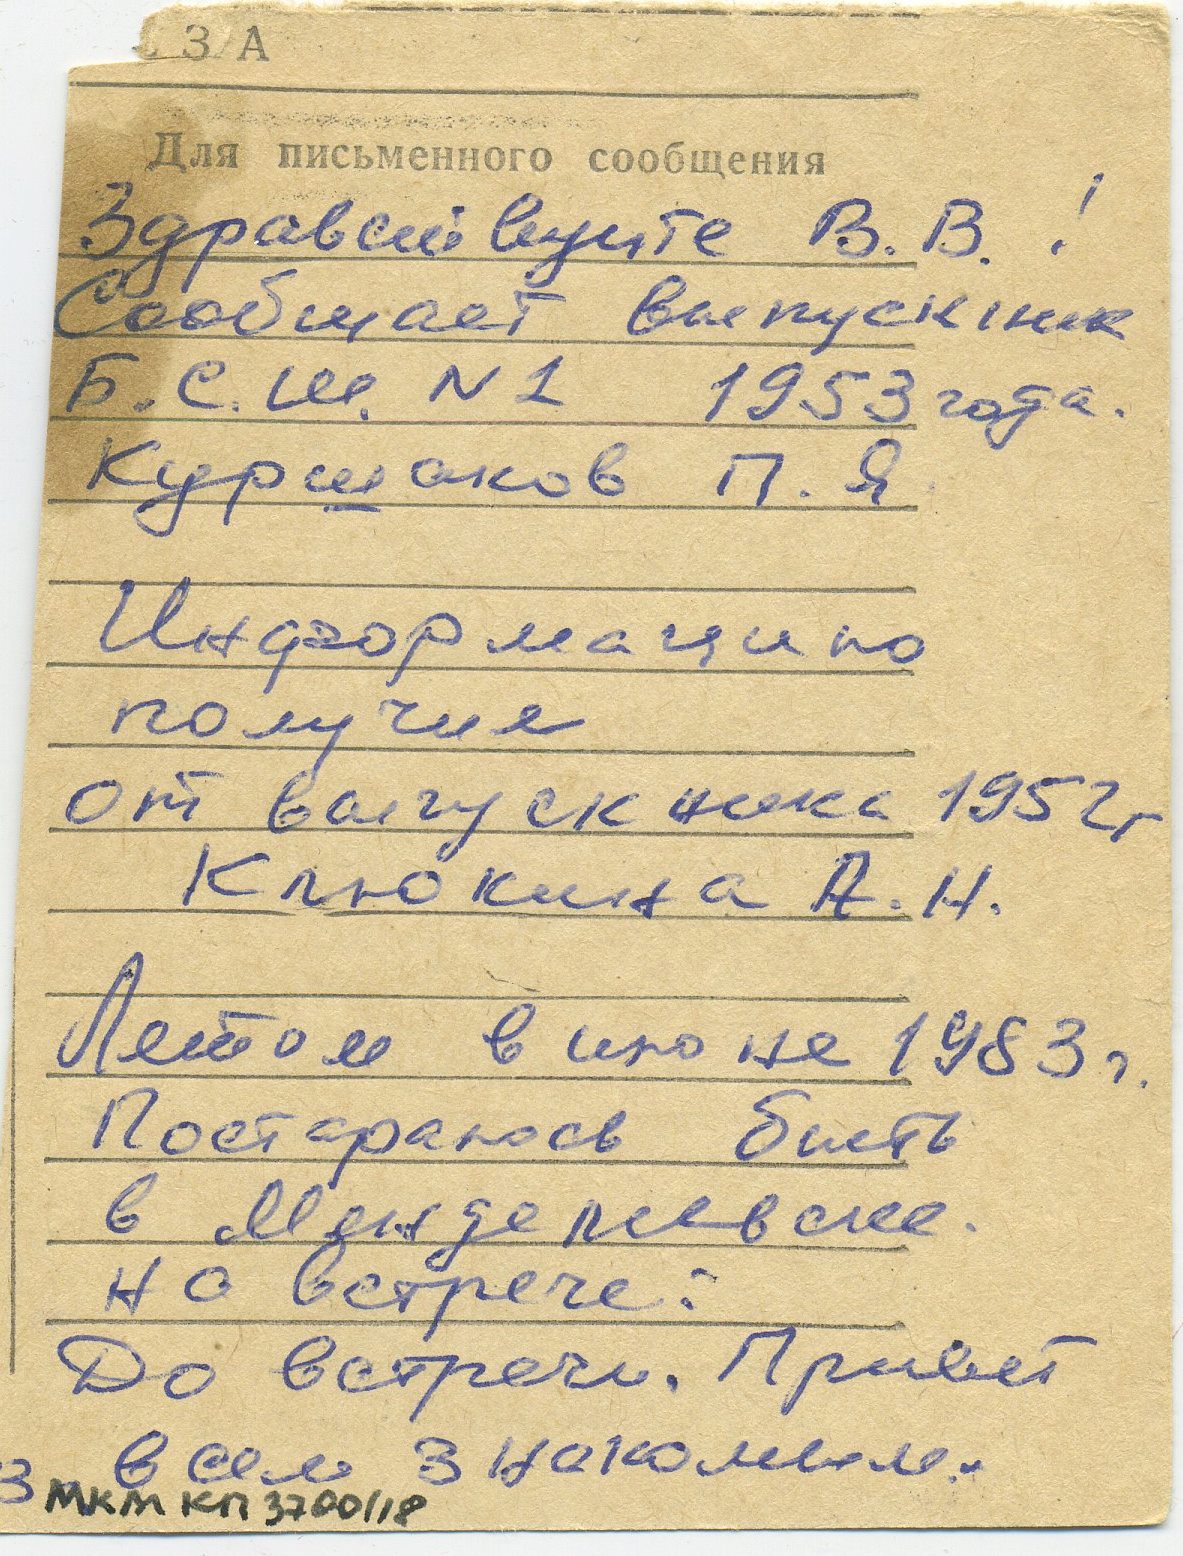 З/А
Для письменного сообщения
Здравствуйте В.В.!
Сообщает выпускник
Б.С.Ш. N 1 1953 года.
Куршаков П.Я
Информацию
получил
от выпускника 1952г
Клюкина А.Н.
Летом в июне 1983 г.
Постараюсь быть
в Менделеевске.
на встрече.
До встречи. Привет
всем знакомым.
МКМ КП 3700/18